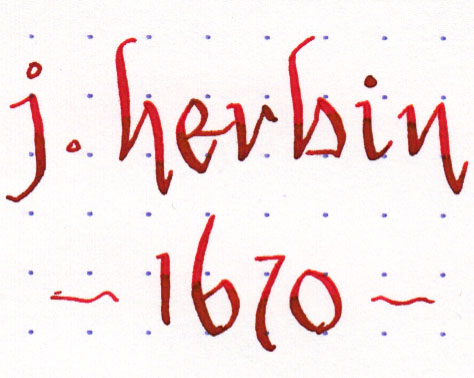 j. herbin
~ 1670 ~